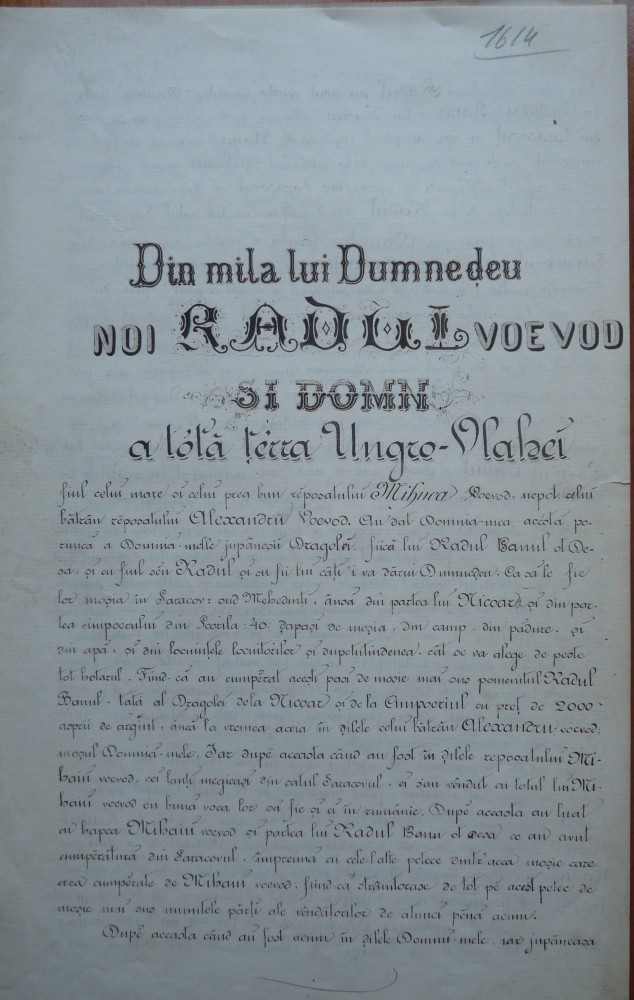 1614
Din mila lui Dumnedeu
NOI RADUL VOEVOD
SI DOMN
a tótă țérra Ungro-Vlahei
fiul celui mare si celui prea bun réposatului Mihnea Voevod, nepot celui
bătrân réposatului Alexandru Voevod. Am dat Domnia-mea acésta po-
runcă a Domnia-mélle jupâncsii Dragolei fiică lui Radul Banul ot De-
sa, și cu fiul séu Radul și cu fii lui câți i va dărui Dumnezeu. Ca sa le fie
lor moșia in Saracov: sud Mehedinți, ânsă din partea lui Nicoară și din par-
tea cimpoerului din Scorila: 40: șapași de moșia, din camp, din pădure, și
din apă, și din locuințele locuitorilor și dupetitindenea, cât se va alege de peste
tot hotarul. Fiind că au cumpérat acesti pasi de mosie mai sus pomenitul Radul
Banul, tată al Dragolei dela Nicoară și dela Cimpoeriul cu preț de 2000
asprii de argint, âncă la vremea aceia in zilele celui bâtrân Alexandru voevod,
moșul Domniei-mele. Iar după aceasta când au fost in zilele reposatului Mi-
haiu voevod, cei lanți megieași din satul Saracovul, ei s'au vêndut cu totul lui Mi-
haiu voevod cu bună voea lor să fie și ei in rumânie. După aceasta au luat
cu hapca Mihaiu voevod și partea lui Radul Banu ot Desa ce au avut
cumpărătură din Saracovul, âmpreună cu cele-l'alte petece dintr'acea moșie care
erea cumpérate de Mihaiu voevod, fiind că strâmtorase de tot pe acest petec de
mosie mai sus numitele părți ale vêndătorilor de atunci pênă acum.
După aceasta când au fost acum in zilele Domnii-mele, iar jupâneasa